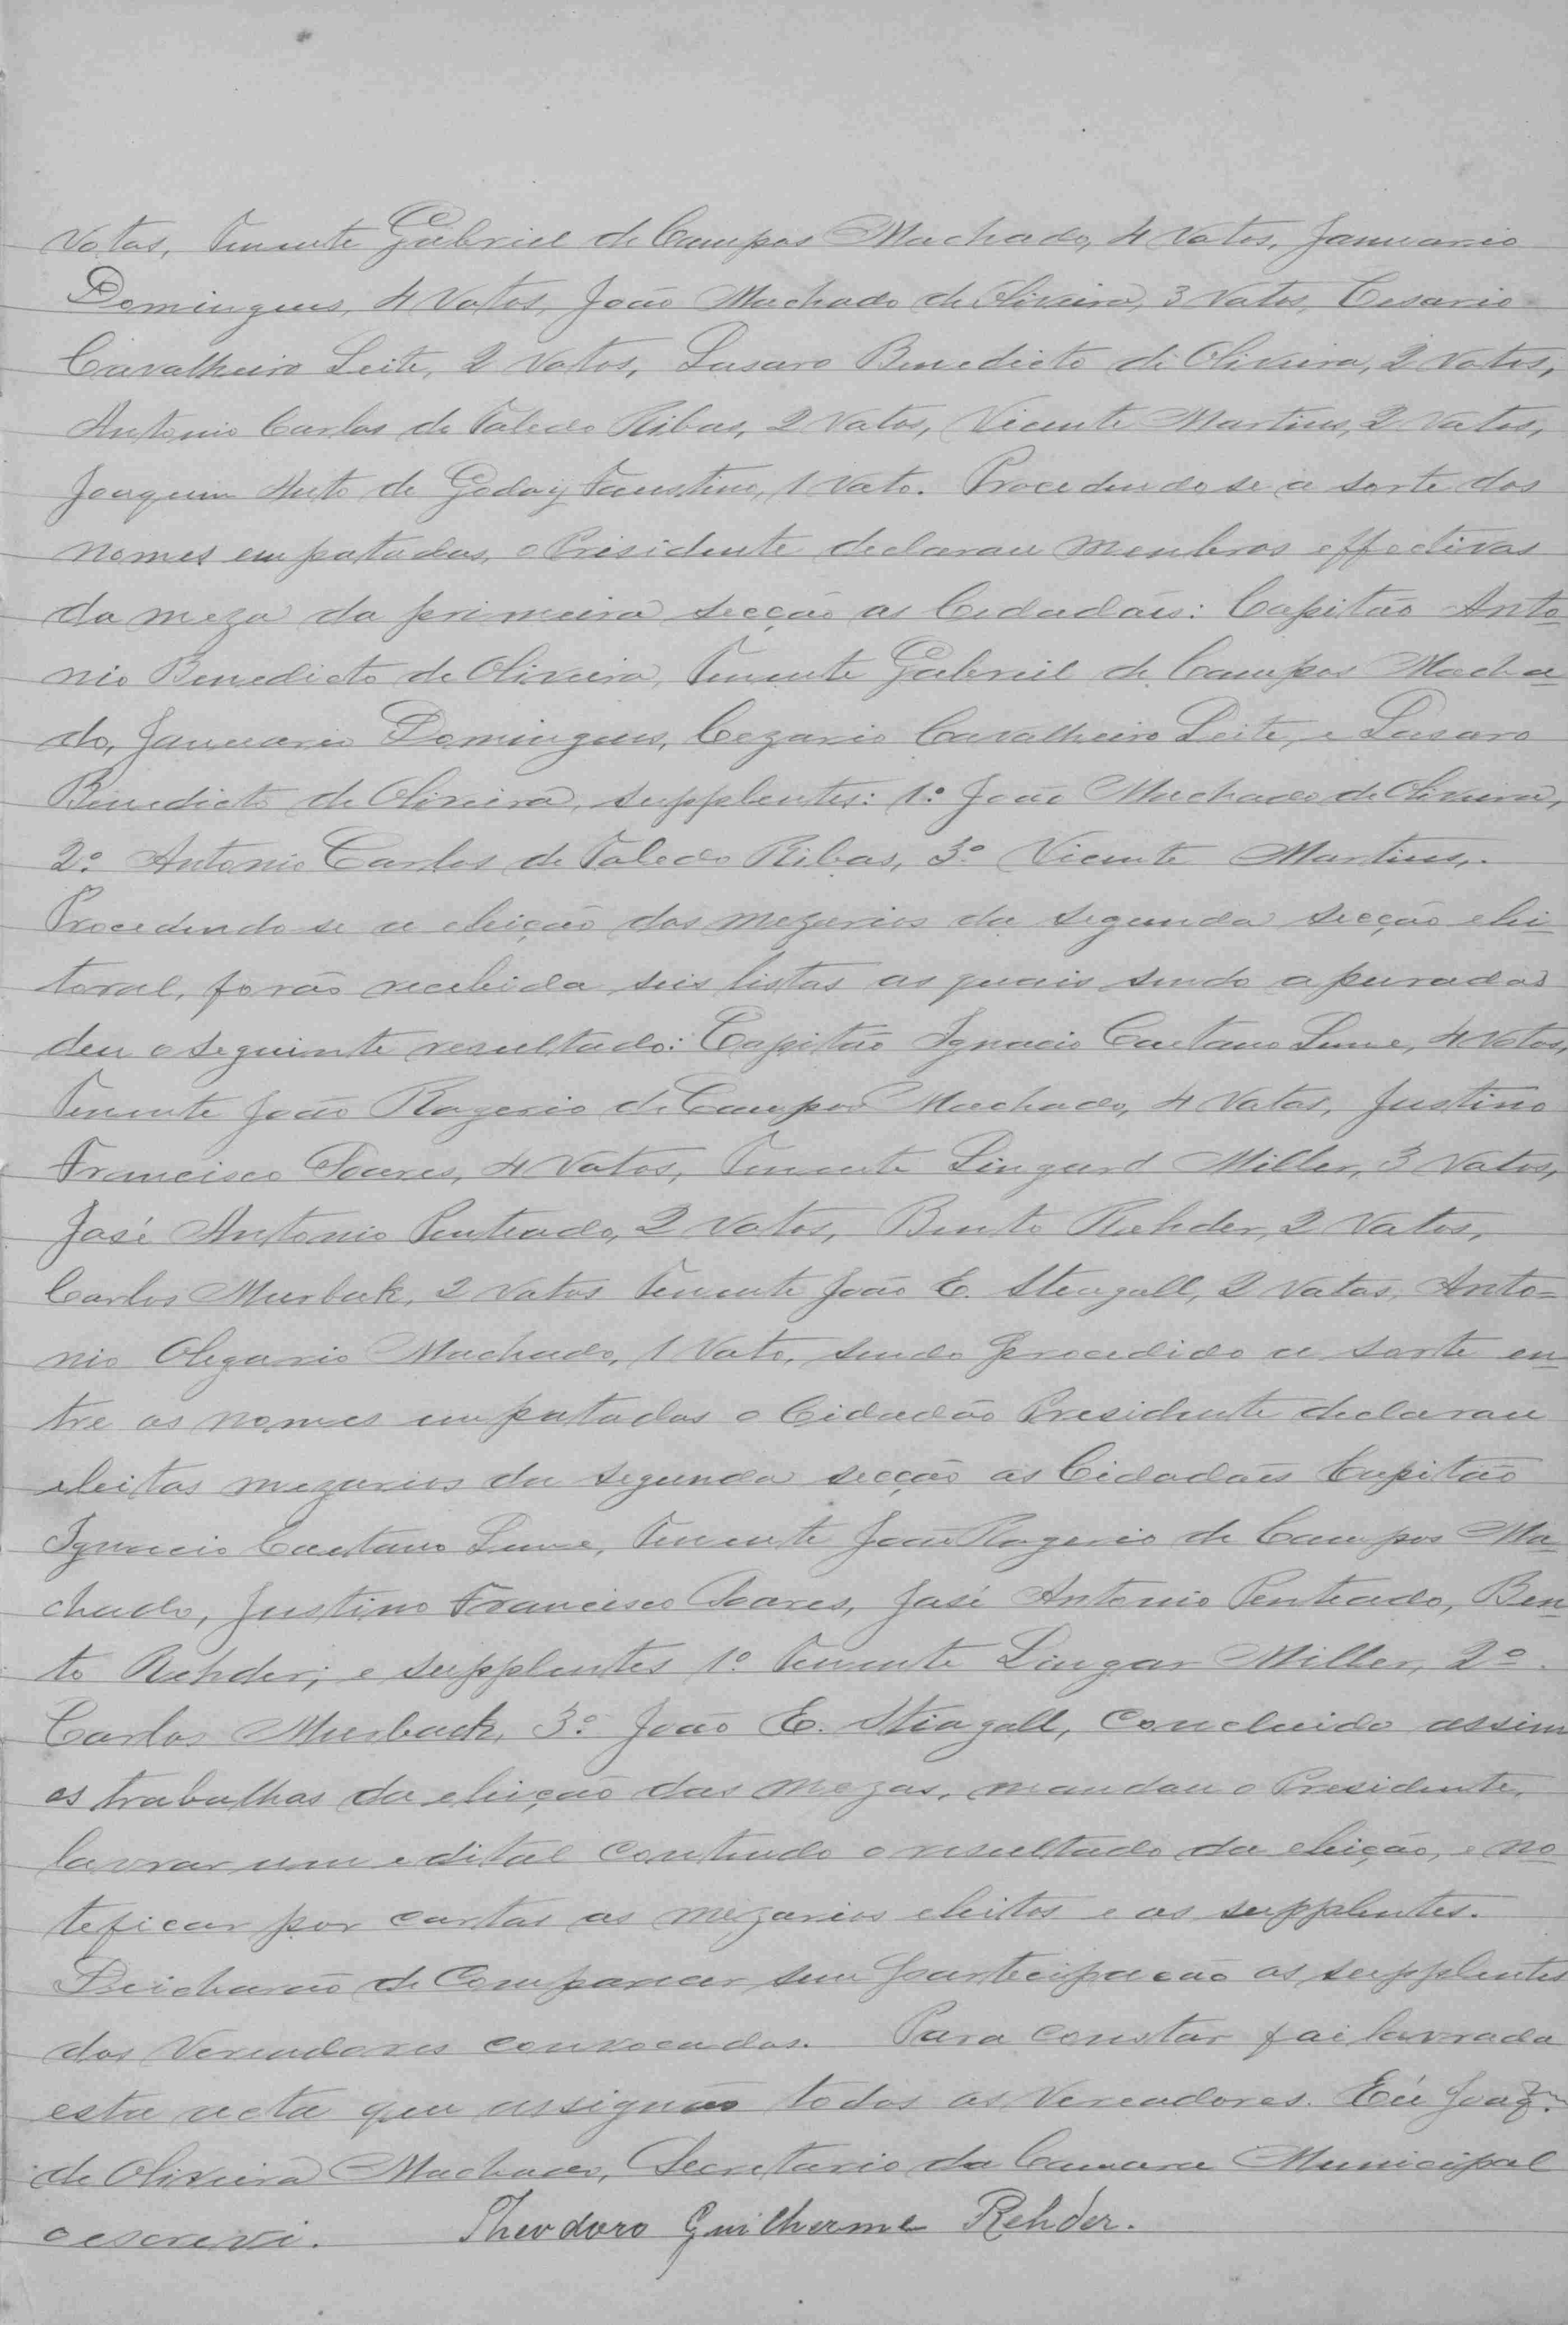 Votos, Tenente Gabriel de Campos Machado, 4 Votos, Januario
Domingues, 4 Votos, João Machado de Oliveira, 3 Votos, Cesario
Cavalheiro Leite, 2 Votos, Lasaro Benedicto de Oliveira, 2 Votos,
Antonio Carlos de Toledo Ribas, 2 Votos, Vicente Martins, 2 Votos,
Joaquim Anto de Godoy Faustino, 1 Voto. Procedendo se a sorte dos
nomes empatados, o Presidente declarou menbros effectivos
da meza da primeira secção os Cidadãis: Capitão Anto
nio Benedicto de Oliveira, Tenente Gabriel de Campos Macha
do, Januario Domingues, Cezario Cavalheiro Leite, e Lasaro
Benedicto de Oliveira, supplentes: 1º João Machado de Oliveira,
2º Antonio Carlos de Toledo Ribas, 3º Vicente Martins,.
Procedendo se a eleição dos mezarios da segunda secção elei
toral, forão recebida seis listas as quais sendo apuradas
deu o seguinte resultado: Capitão Ignacio Caetano Leme, 4 Votos,
Tenente João Rogerio de Campos Machado, 4 Votos, Justino
Francisco Soares, 4 Votos, Tenente Lingard Miller, 3 Votos,
José Antonio Penteado, 2 Votos, Bento Rehder, 2 Votos,
Carlos Murbak, 2 Votos Tenente João E. Steagall, 2 Votos, Anto=
nio Olegario Machado, 1 Voto, sendo procedido a sorte en
tre os nomes empatados o Cidadão Presidente declarou
eleitos mezarios da segunda secção os Cidadãis Capitão
Ignacio Caetano Leme, Tenente João Rogerio de Campos Ma
chado, Justino Francisco Soares, José Antonio Penteado, Ben
to Rehder; e supplentes 1º Tenente Lingar Miller, 2º
Carlos Murback, 3º João E. Steagall, Concluido assim
os trabalhos da eleição das mezas, mandou o Presidente,
lavrar um edital contendo o resultado da eleição, e no
teficar por cartas os mezarios eleitos e os supplentes.
Deicharão de Comparecer sem participacão os supplentes
dos Vereadores convocados. Para constar foi lavrada
esta acta que assignão todos os Vereadores. Eú Joaqm
de Oliveira Machado, Secretario da Camara Municipal
o escrevi. Theodoro Guilherme Rehder.